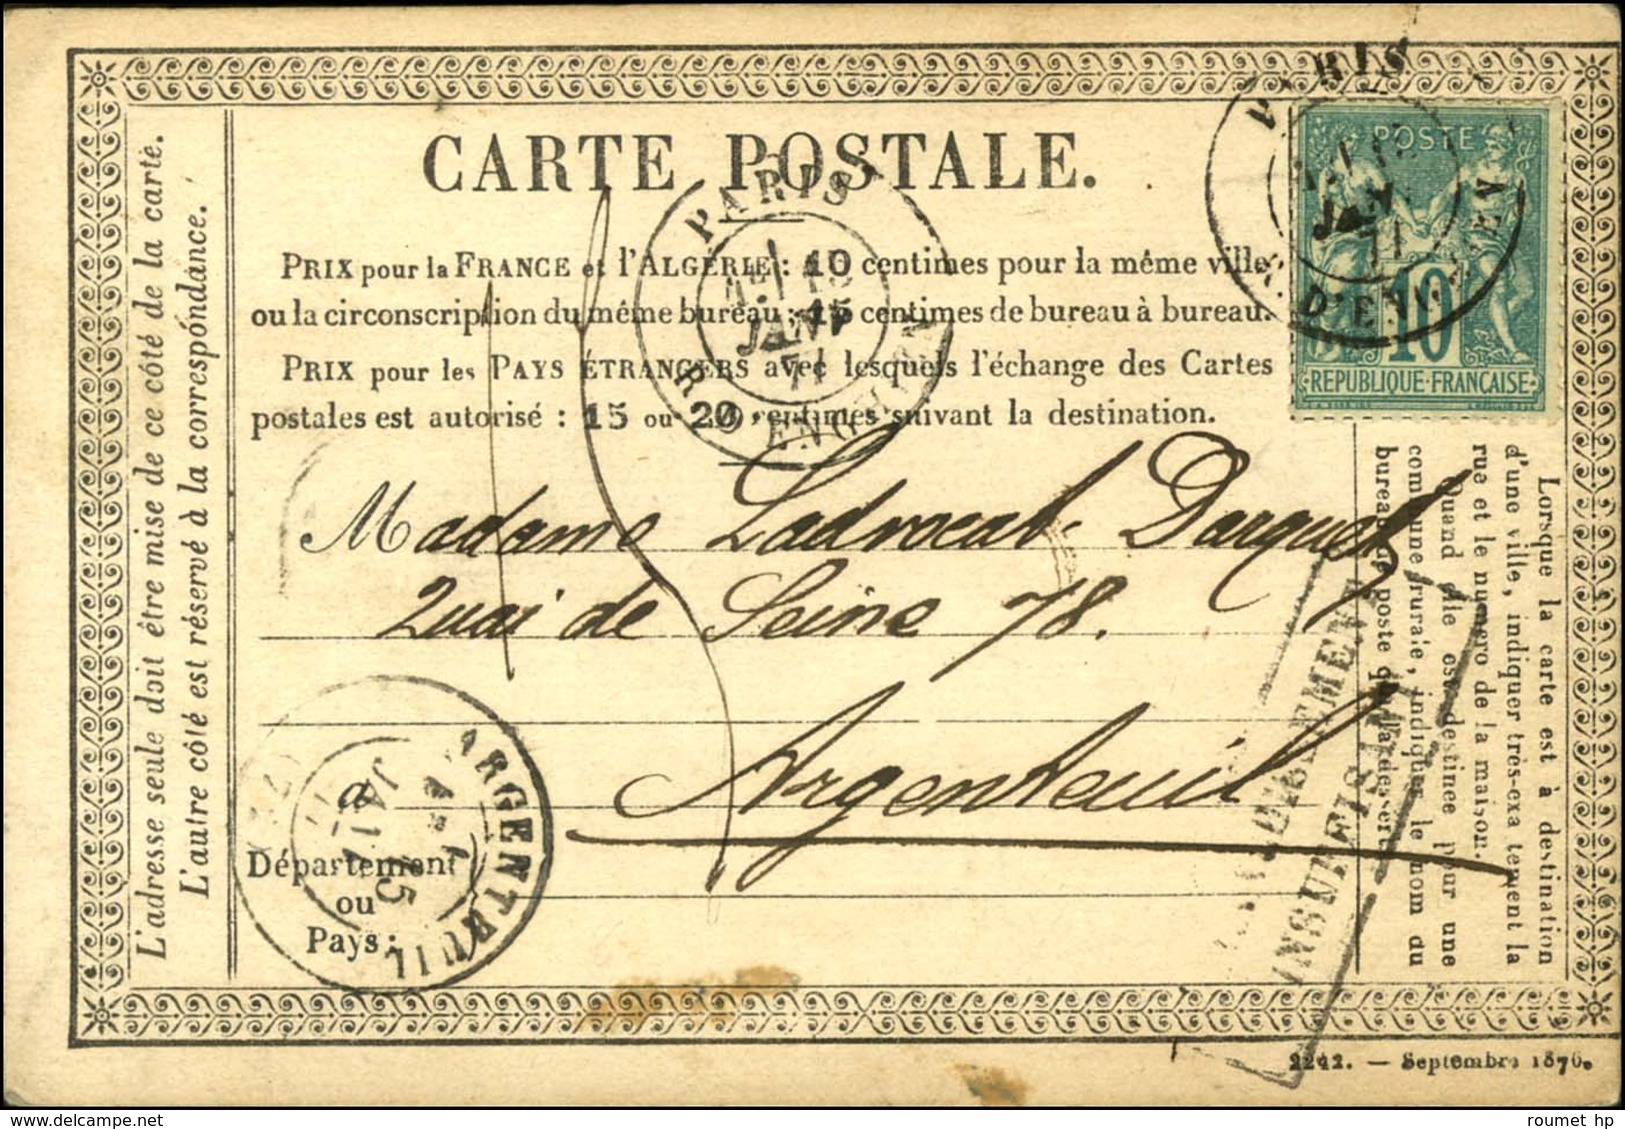 CARTE POSTALE.
PRIX pour la FRANCE et l'ALGÉRIE : 10 centimes pour la même ville
ou la circonscription du même bureau ; 15 centimes de bureau à bureau.
PRIX pour les PAYS ÉTRANGERS avec lesquels l'échange des Cartes
postales est autorisé : 15 ou 20 centimes suivant la destination.
L'adresse seule doit être mise de ce côté de la carte.
L'autre côté est réservé à la correspóndance.
PARIS
JANV
77
R. D'ENGHIEN
PARIS
JANV.
77
R. D'ENGHIEN
POSTE
10
REPUBLIQUE·FRANÇAISE
Madame Ladvocat Darquet
Quai de Seine 78.
Argenteuil
à
Département
ou
Pays :
ARGENTEUIL
AFFRANCHISSEMENT
INSUFFISANT
Lorsque la carte est à destination
d'une ville, indiquer très-exactement la
rue et le numéro de la maison.
Quand elle est destinée pour une
commune rurale, indiquer le nom du
bureau de poste qui la dessert.
2242. — Septembre 1876.
roumet hp